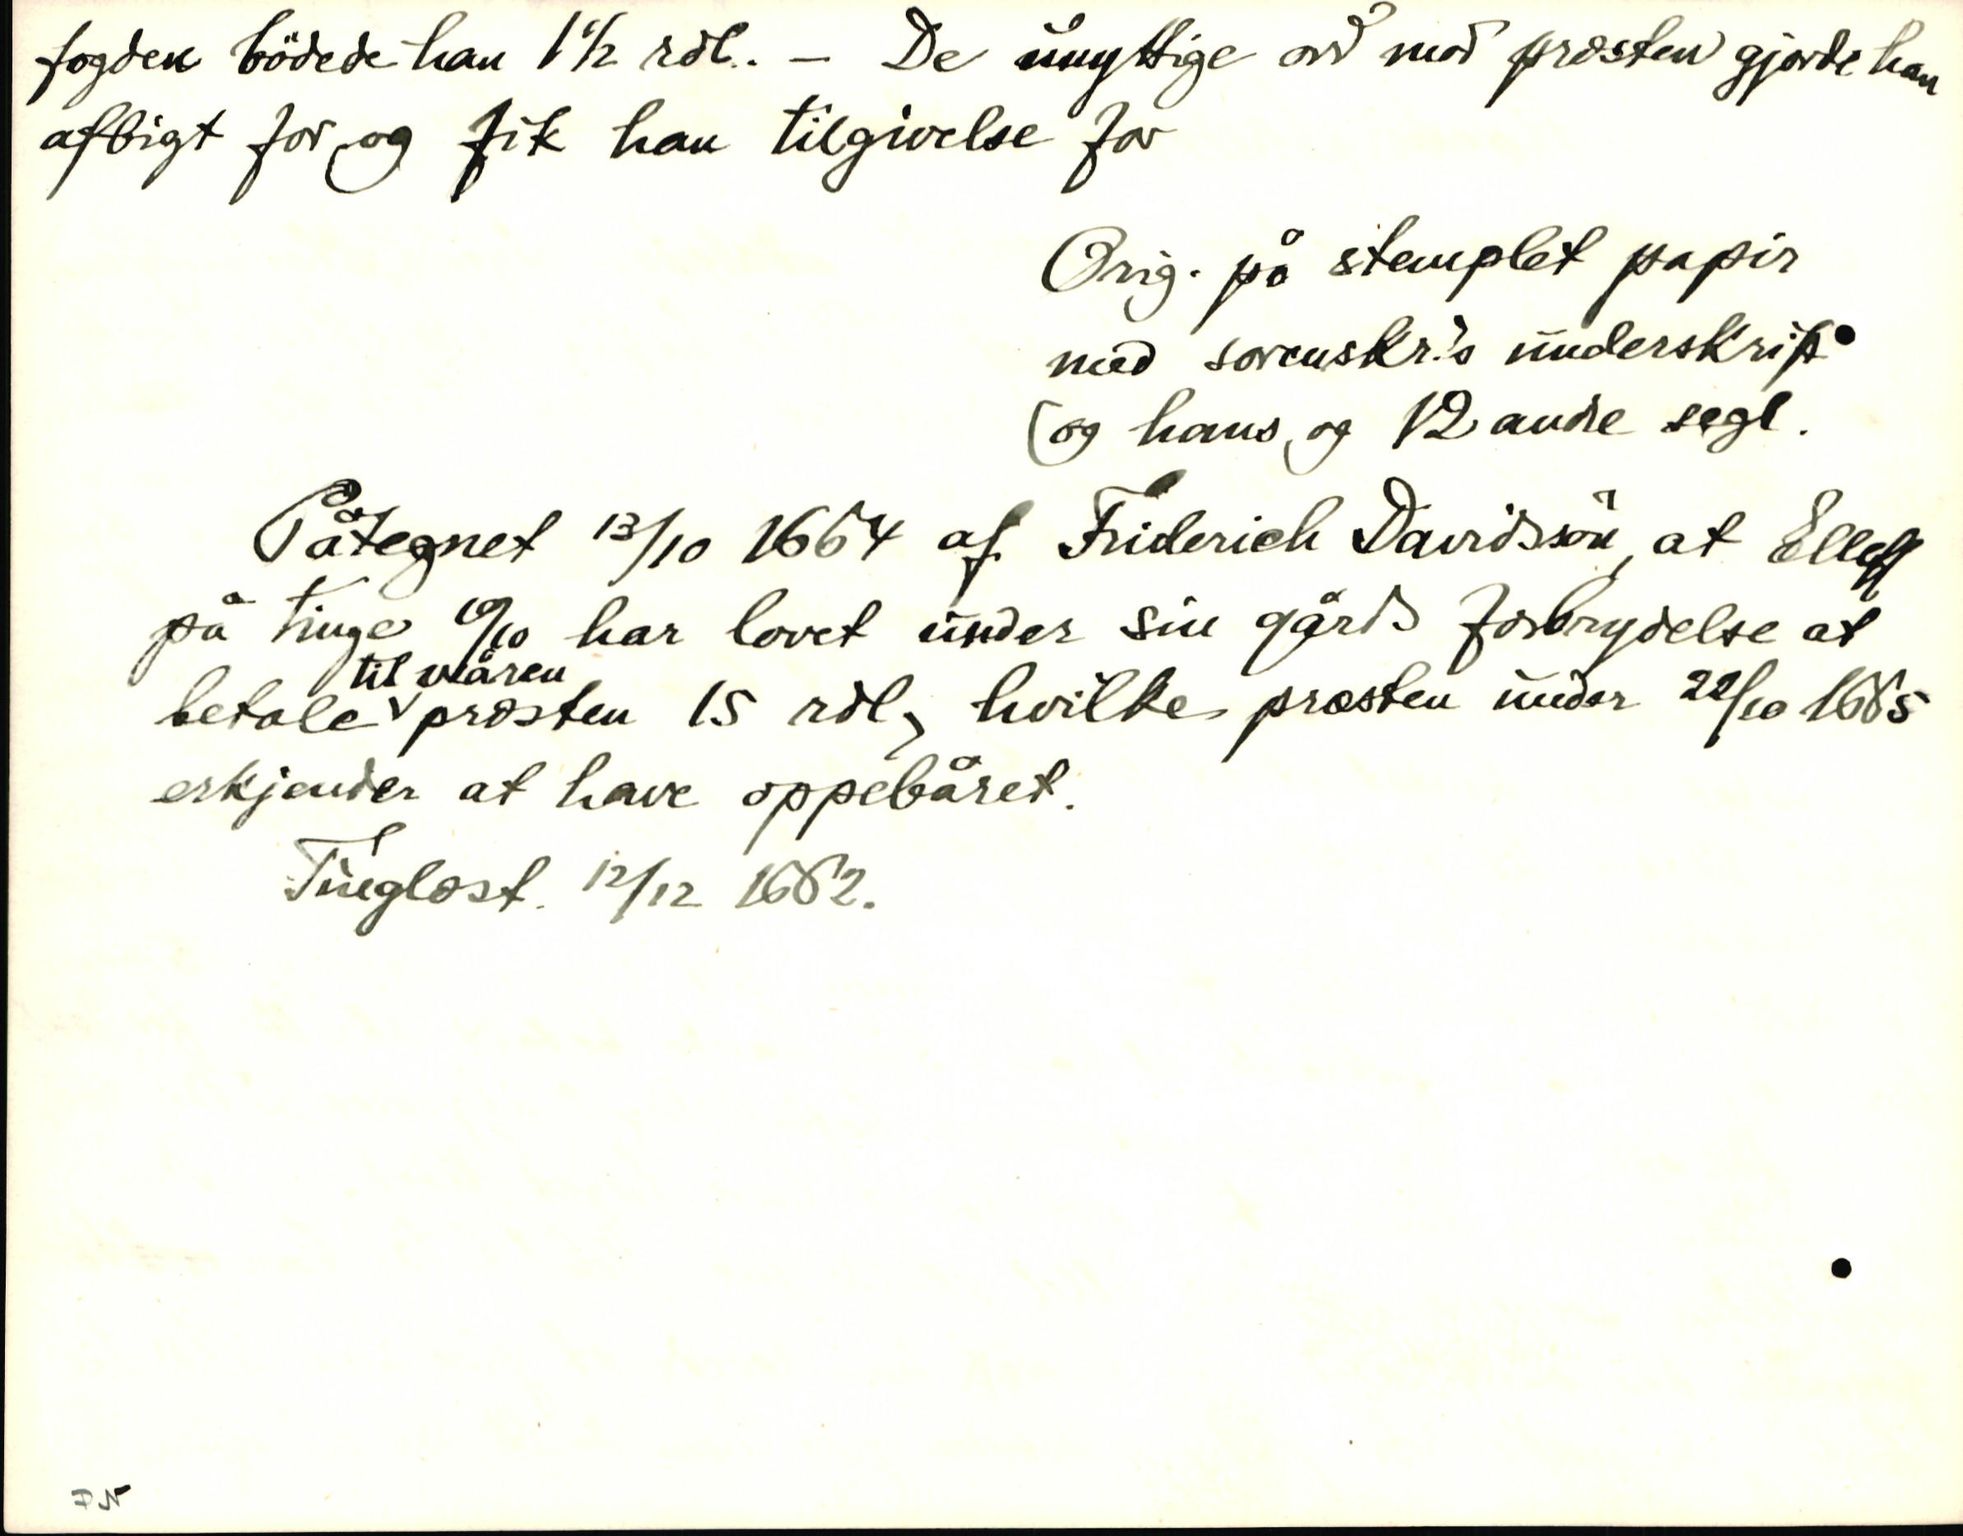 fogden bödede han 1½ rdl. – De unyttige ord mod præsten gjorde han
afbigt for, og fik han tilgivelse for
Orig. på stemplet papir
med sorenskr.'s underskrift
(og hans) og 12 andre segl.
Påtegnet 13/10 1664 af Friderich Davidssön, at Elleff
på tinge 10/10 har lovet under sin gårds forbrydelse at
til våren
betale præsten 15 rdl, hvilke præsten under 22/10 1665
erkjender at have oppebåret.
Tinglæst. 12/12 1662.